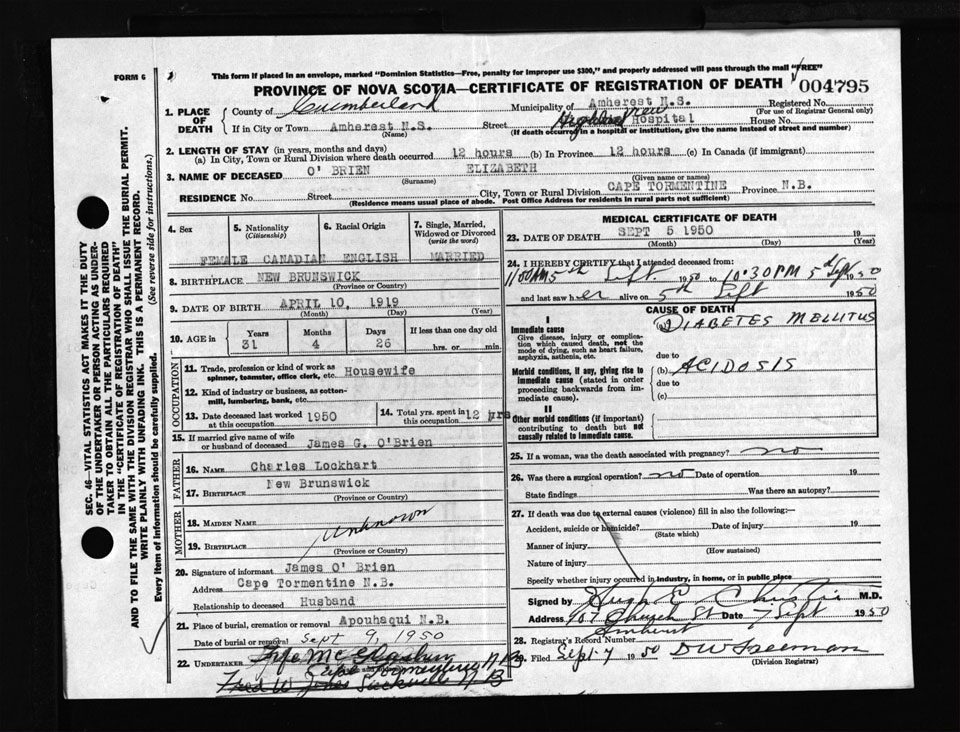 FORM 6
This form if placed in an envelope, marked "Dominion Statistics—Free, penalty for improper use $300," and properly addressed will pass through the mail "FREE"
PROVINCE OF NOVA SCOTIA—CERTIFICATE OF REGISTRATION OF DEATH
004795
1. PLACE OF DEATH
County of Cumberland
Municipality of Amherest N.S. Registered No.
(For use of Registrar General only)
If in City or Town Amherest N.S. Street Highland View Hospital House No.
(Name) (If death occurred in a hospital or institution, give the name instead of street and number)
2. LENGTH OF STAY (in years, months and days)
(a) In City, Town or Rural Division where death occurred 12 hours (b) In Province 12 hours (c) In Canada (if immigrant)
3. NAME OF DECEASED O' BRIEN ELIZABETH
(Surname) (Given name or names)
RESIDENCE No. Street City, Town or Rural Division CAPE TORMENTINE Province N.B.
(Residence means usual place of abode. Post Office Address for residents in rural parts not sufficient)
4. Sex
5. Nationality (Citizenship)
6. Racial Origin
7. Single, Married, Widowed or Divorced (write the word)
FEMALE CANADIAN ENGLISH MARRIED
8. BIRTHPLACE NEW BRUNSWICK
(Province or Country)
9. DATE OF BIRTH APRIL 10, 1919
(Month) (Day) (Year)
10. AGE in Years Months Days If less than one day old
31 4 26 hrs. or min.
OCCUPATION
11. Trade, profession or kind of work as spinner, teamster, office clerk, etc. Housewife
12. Kind of industry or business, as cotton-mill, lumbering, bank, etc.
13. Date deceased last worked at this occupation 1950
14. Total yrs. spent in this occupation 12 yrs
15. If married give name of wife or husband of deceased James G. O'Brien
FATHER
16. NAME Charles Lockhart
17. BIRTHPLACE New Brunswick
(Province or Country)
MOTHER
18. MAIDEN NAME
Unknown
19. BIRTHPLACE
(Province or Country)
20. Signature of informant James O' Brien
Address Cape Tormentine N.B.
Relationship to deceased Husband
21. Place of burial, cremation or removal Apouhaqui N.B.
Date of burial or removal Sept 9, 1950
22. UNDERTAKER
Cape Tormentine N B
Fred W Jones Sackville N B
MEDICAL CERTIFICATE OF DEATH
23. DATE OF DEATH SEPT 5 1950 19
(Month) (Day) (Year)
24. I HEREBY CERTIFY that I attended deceased from:
11:00AM 5th Sept. 1950 to 10:30PM 5th Sept 1950
and last saw her alive on 5th Sept 1950
CAUSE OF DEATH
I
Immediate cause
Give disease, injury or complication which caused death, not the mode of dying, such as heart failure, asphyxia, asthenia, etc.
(a) DIABETES MELLITUS
due to
Morbid conditions, if any, giving rise to immediate cause (stated in order proceeding backwards from immediate cause).
(b) ACIDOSIS
due to
(c)
II
Other morbid conditions (if important) contributing to death but not causally related to immediate cause.
25. If a woman, was the death associated with pregnancy? no
26. Was there a surgical operation? no Date of operation 19
State findings Was there an autopsy?
27. If death was due to external causes (violence) fill in also the following:—
Accident, suicide or homicide? Date of injury 19
(State which)
Manner of injury
(How sustained)
Nature of injury
Specify whether injury occurred in industry, in home, or in public place
Signed by Hugh E Christie M.D.
Address 107 Church St Date 7 Sept 1950
Amherst
28. Registrar's Record Number
29. Filed Sept 7 1950 D W Freeman
(Division Registrar)
SEC. 46—VITAL STATISTICS ACT MAKES IT THE DUTY
OF THE UNDERTAKER OR PERSON ACTING AS UNDER-
TAKER TO OBTAIN ALL THE PARTICULARS REQUIRED
IN THE "CERTIFICATE OF REGISTRATION OF DEATH"
AND TO FILE THE SAME WITH THE DIVISION REGISTRAR WHO SHALL ISSUE THE BURIAL PERMIT.
WRITE PLAINLY WITH UNFADING INK. THIS IS A PERMANENT RECORD.
Every item of information should be carefully supplied. (See reverse side for instructions.)